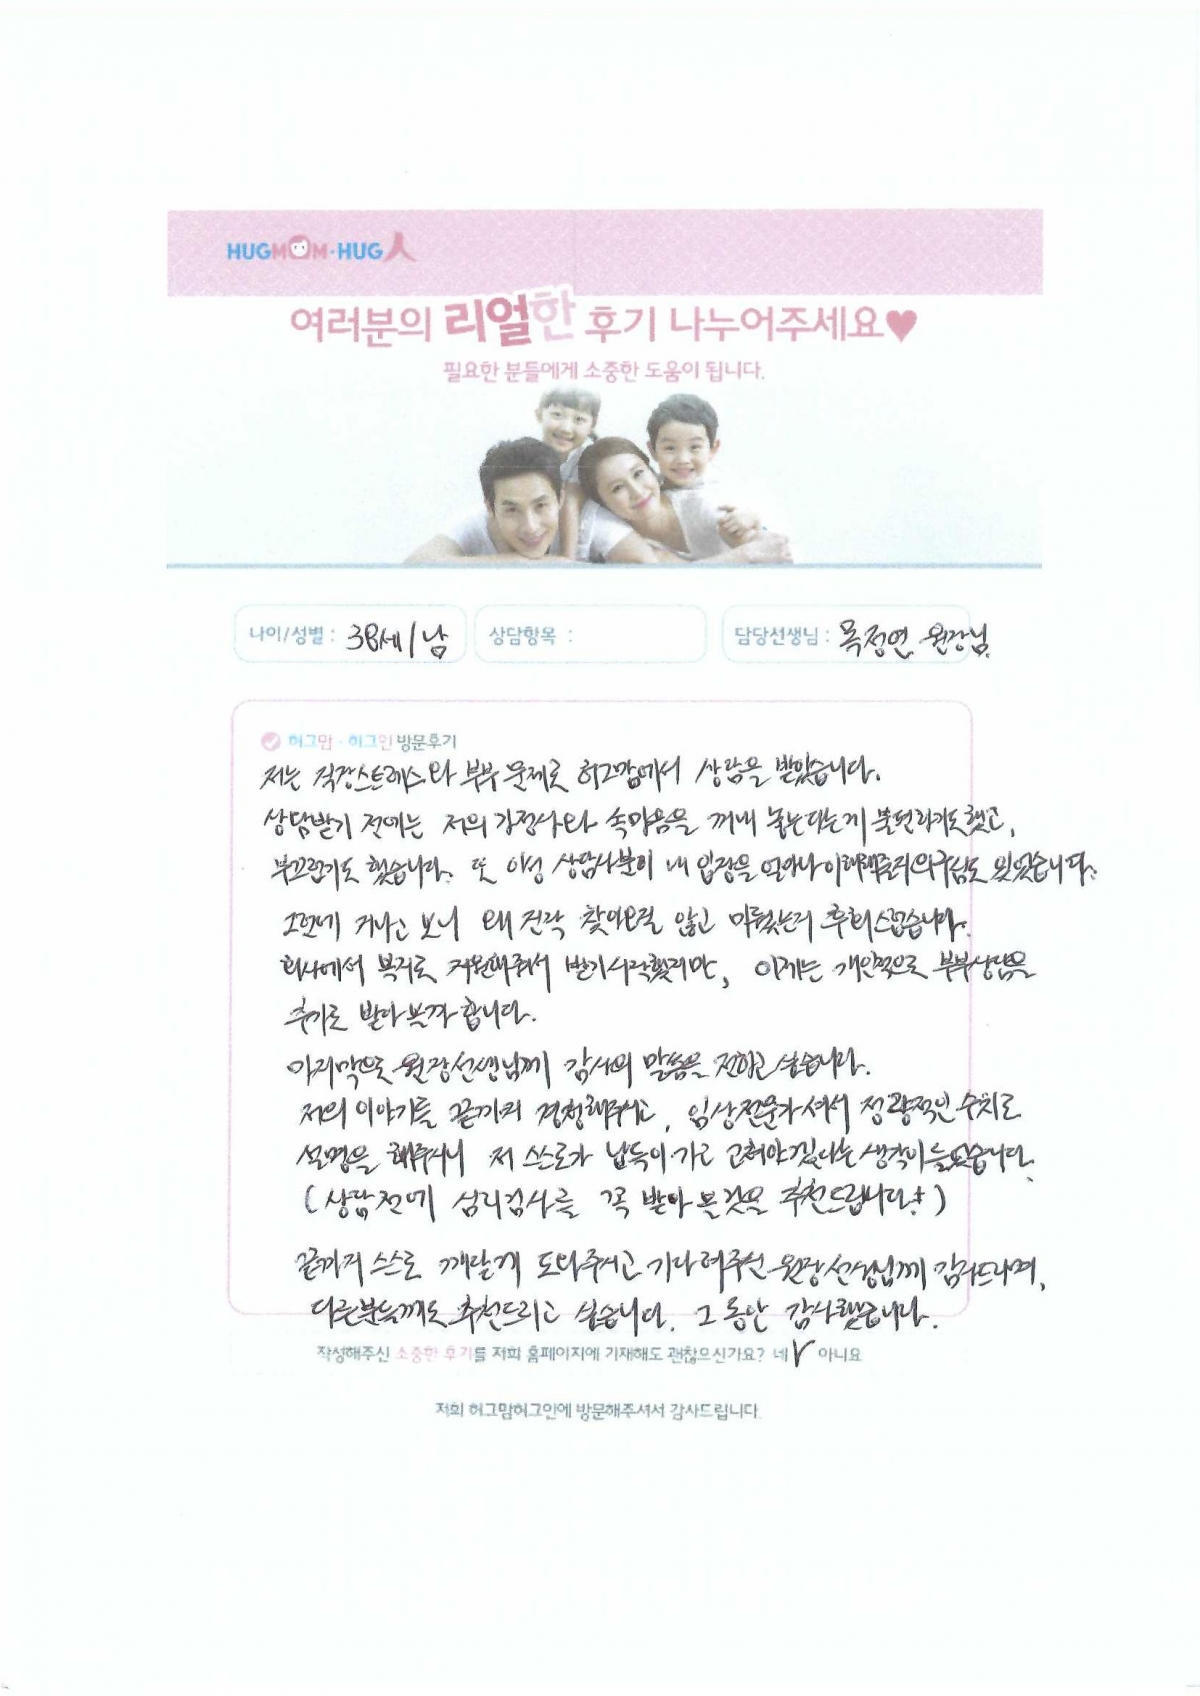 HUGMOM·HUG人
여러분의 리얼한 후기 나누어주세요♥
필요한 분들에게 소중한 도움이 됩니다.
나이/성별 : 38세/남
상담항목 :
담당선생님 : 목정연 원장님.
허그맘·허그인 방문후기
저는 직장스트레스와 부부 문제로 허그맘에서 상담을 받았습니다.
상담받기 전에는 저의 가정사와 속마음을 꺼내 놓는다는게 불편하기도했고,
부끄럽기도 했습니다. 또 이성 상담사분이 내 입장을 얼마나 이해해줄지 의구심도 있었습니다.
그런데 지나고 보니 왜 진작 찾아오질 않고 미뤘는지 후회스럽습니다.
회사에서 복지로 지원해줘서 받기 시작했지만, 이제는 개인적으로 부부상담을
추가로 받아 볼까 합니다.
마지막으로 원장선생님께 감사의 말씀을 전하고 싶습니다.
저의 이야기를 끝까지 경청해주시고, 임상전문가셔서 정량적인 수치로
설명을 해주시니 저 스스로가 납득이 가고 고쳐야겠다는 생각이 들었습니다.
(상담전에 심리검사를 꼭 받아 볼것을 추천드립니다!)
끝까지 스스로 깨닫게 도와주시고 기다려주신 원장선생님께 감사드리며,
다른분들께도 추천드리고 싶습니다. 그 동안 감사했습니다.
작성해주신 소중한 후기를 저희 홈페이지에 기재해도 괜찮으신가요? 네 V 아니요
저희 허그맘허그인에 방문해주셔서 감사드립니다.